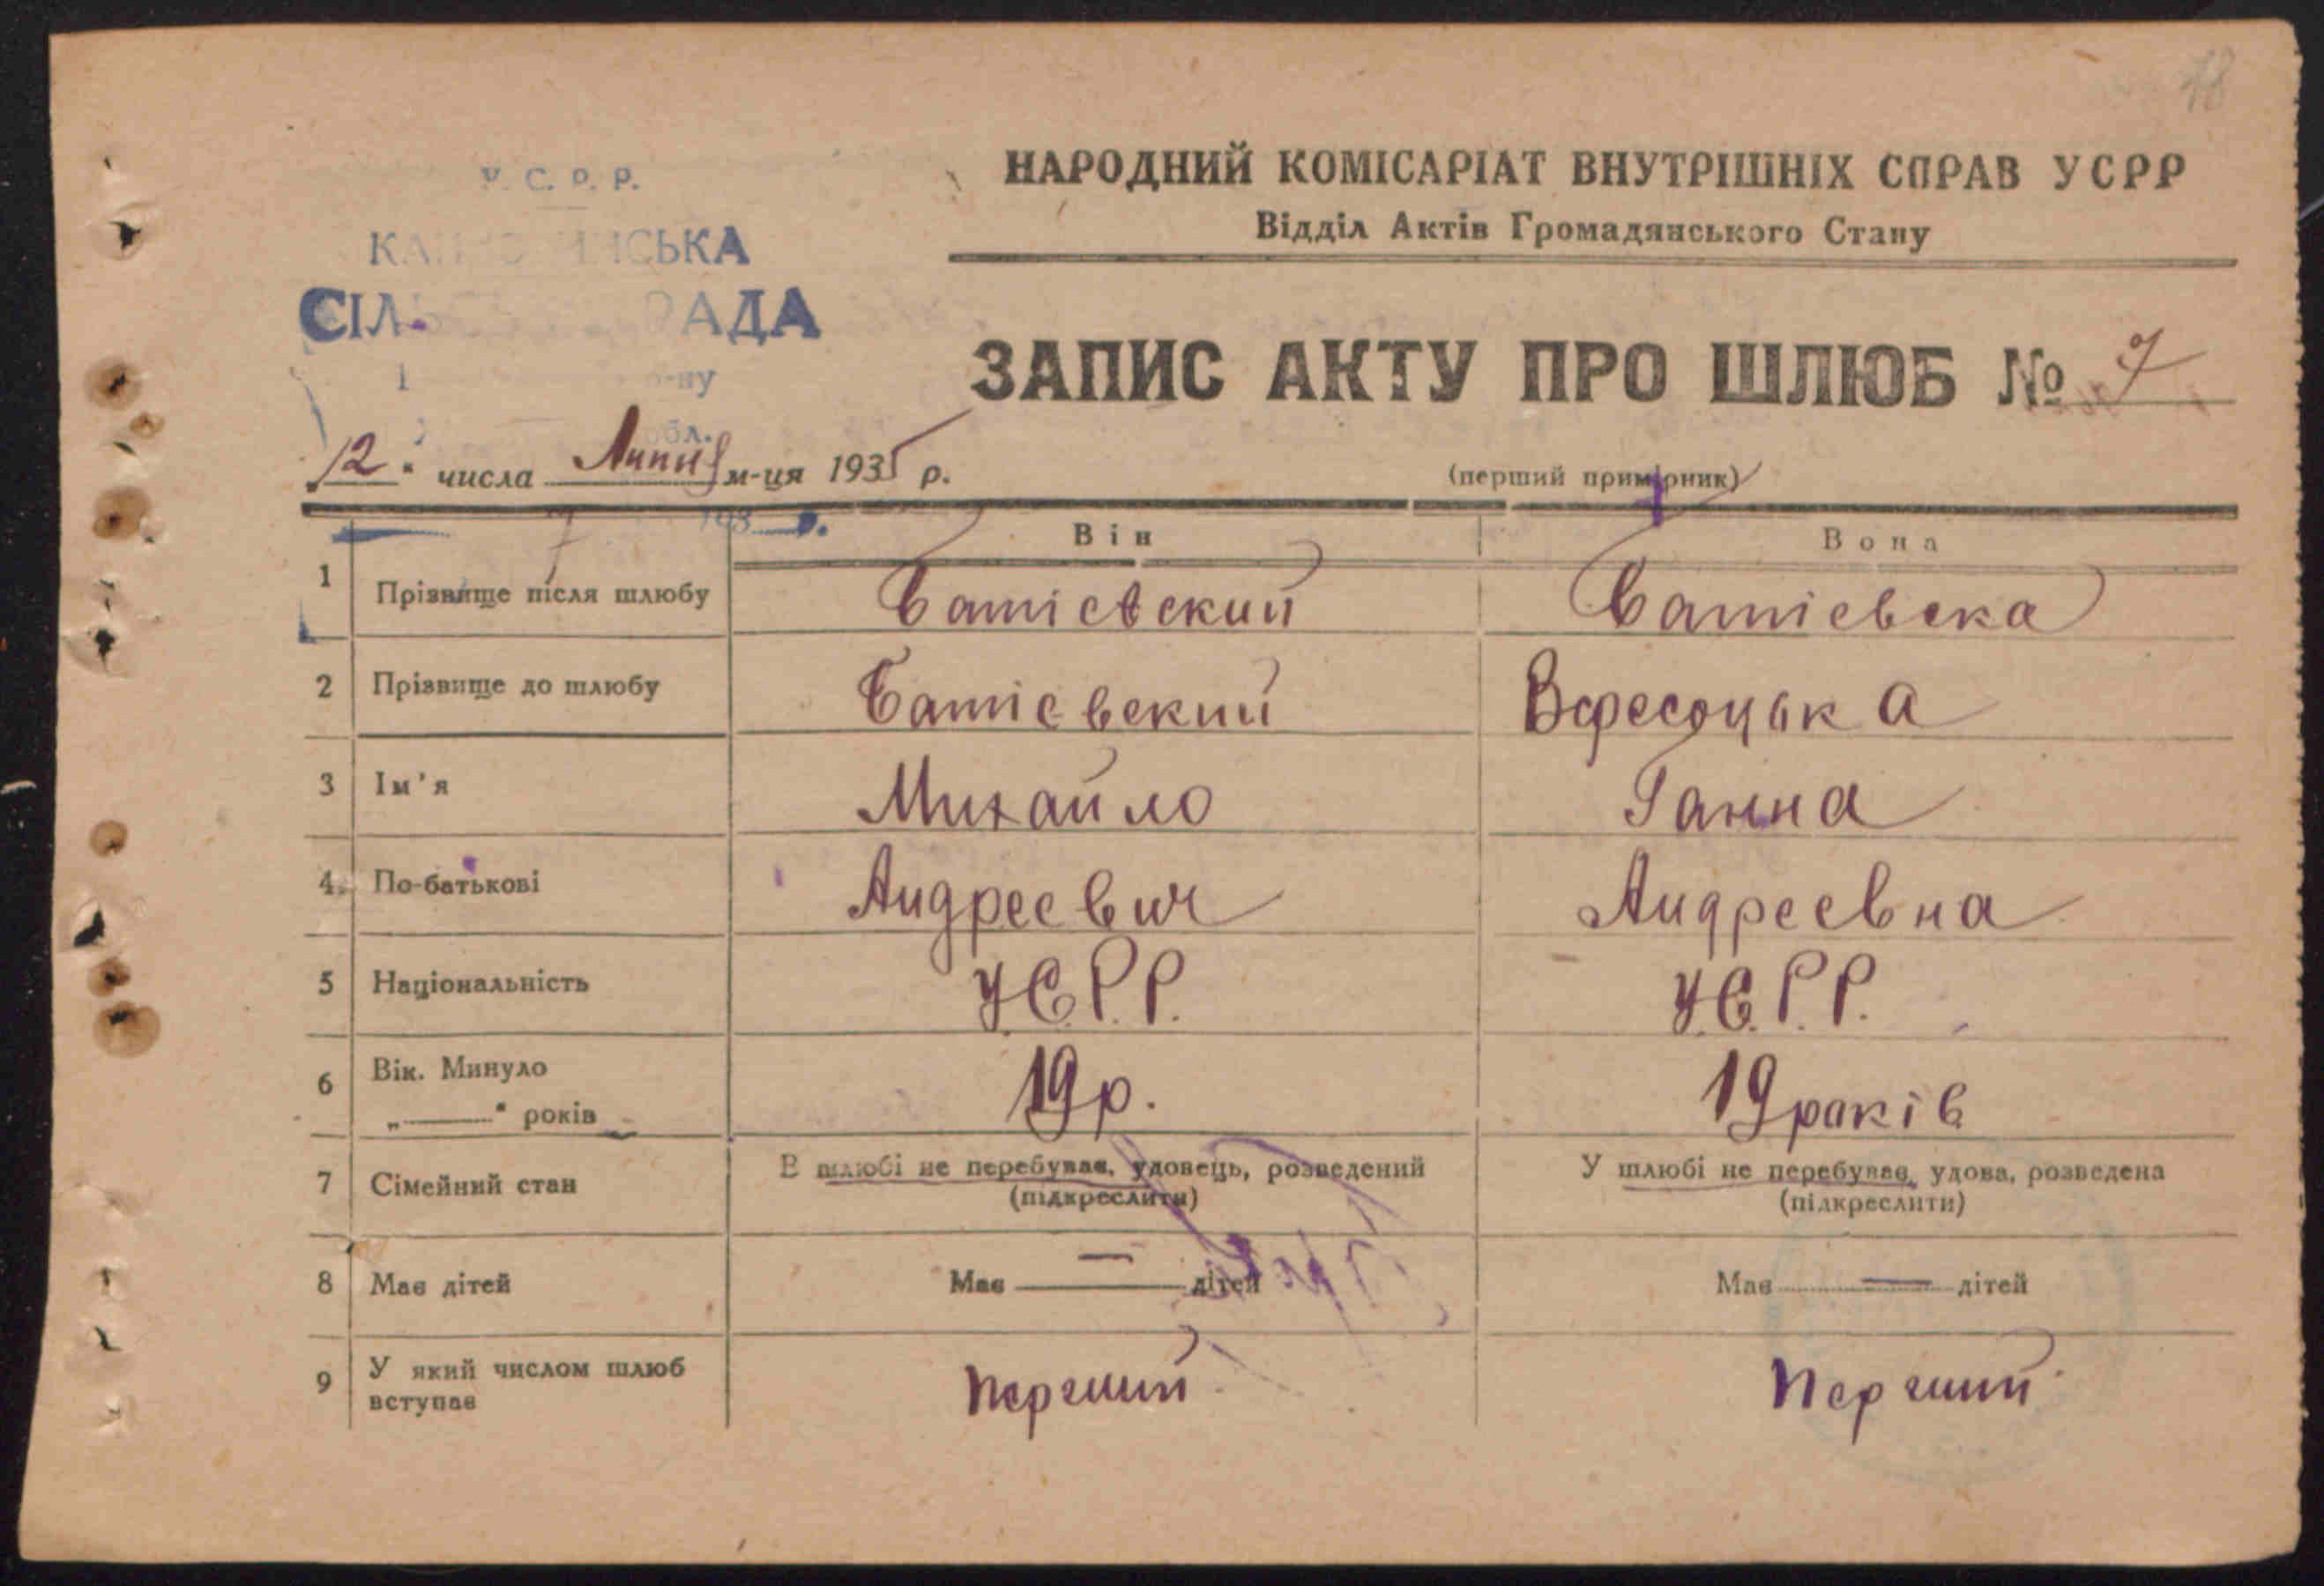 18
У. С. Р. Р.
НАРОДНИЙ КОМІСАРІАТ ВНУТРІШНІХ СПРАВ УСРР
Відділ Актів Громадянського Стану
СІЛЬСЬКА РАДА
р-ну
обл.
ЗАПИС АКТУ ПРО ШЛЮБ № 7
„12“ числа Липня м-ця 1935 р.
(перший примірник)
193 р.
Він
Вона
1 Прізвище після шлюбу Батієвский Батієвска
2 Прізвище до шлюбу Батієвский Вересоцька
3 Ім'я Михайло Ганна
4. По-батькові Андреєвич Андреєвна
5 Національність У.С.Р.Р. У.С.Р.Р.
6 Вік. Минуло
„——“ років 19 р. 19 раків
7 Сімейний стан В шлюбі не перебував, удовець, розведений У шлюбі не перебував, удова, розведена
(підкреслити) (підкреслити)
8 Має дітей Має — дітей Має — дітей
9 У який числом шлюб
вступає перший перший